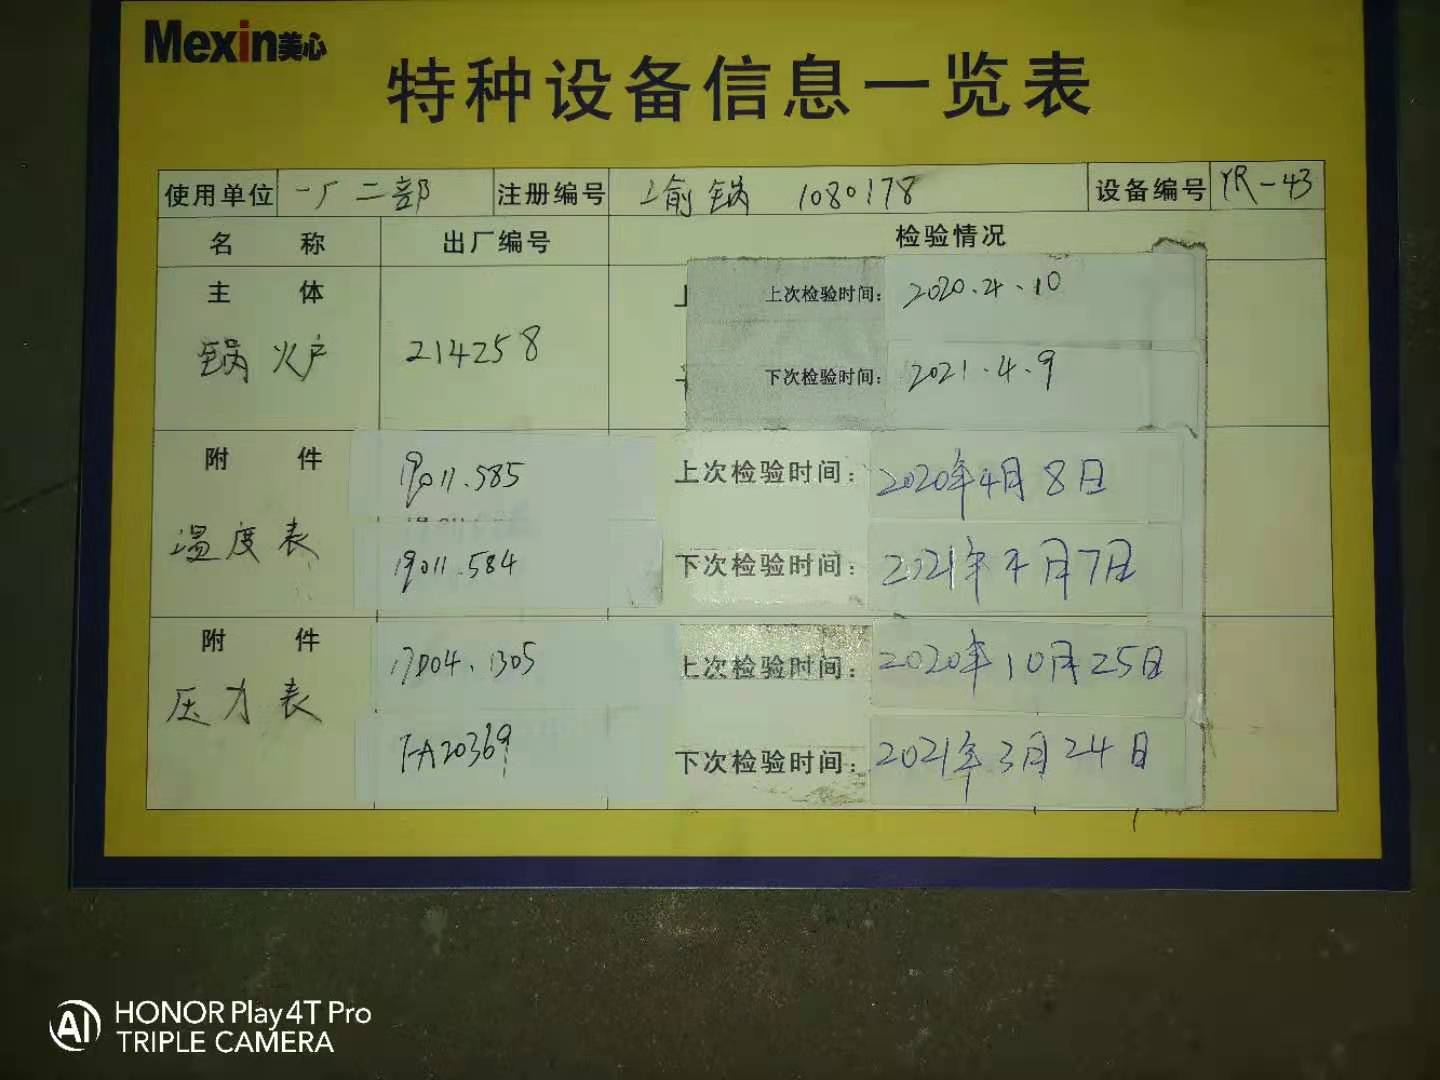 Mexin美心
特种设备信息一览表
使用单位 一厂二部 注册编号 渝锅 1080178 设备编号 YR-43
名 称 出厂编号 检验情况
主 体
锅炉 214258
上次检验时间： 2020.4.10
下次检验时间： 2021.4.9
附 件
温度表
19011.585
19011.584
上次检验时间： 2020年4月8日
下次检验时间： 2021年4月7日
附 件
压力表
17D04.1305
上次检验时间： 2020年10月25日
下次检验时间： 2021年3月24日
AI HONOR Play4T Pro
TRIPLE CAMERA